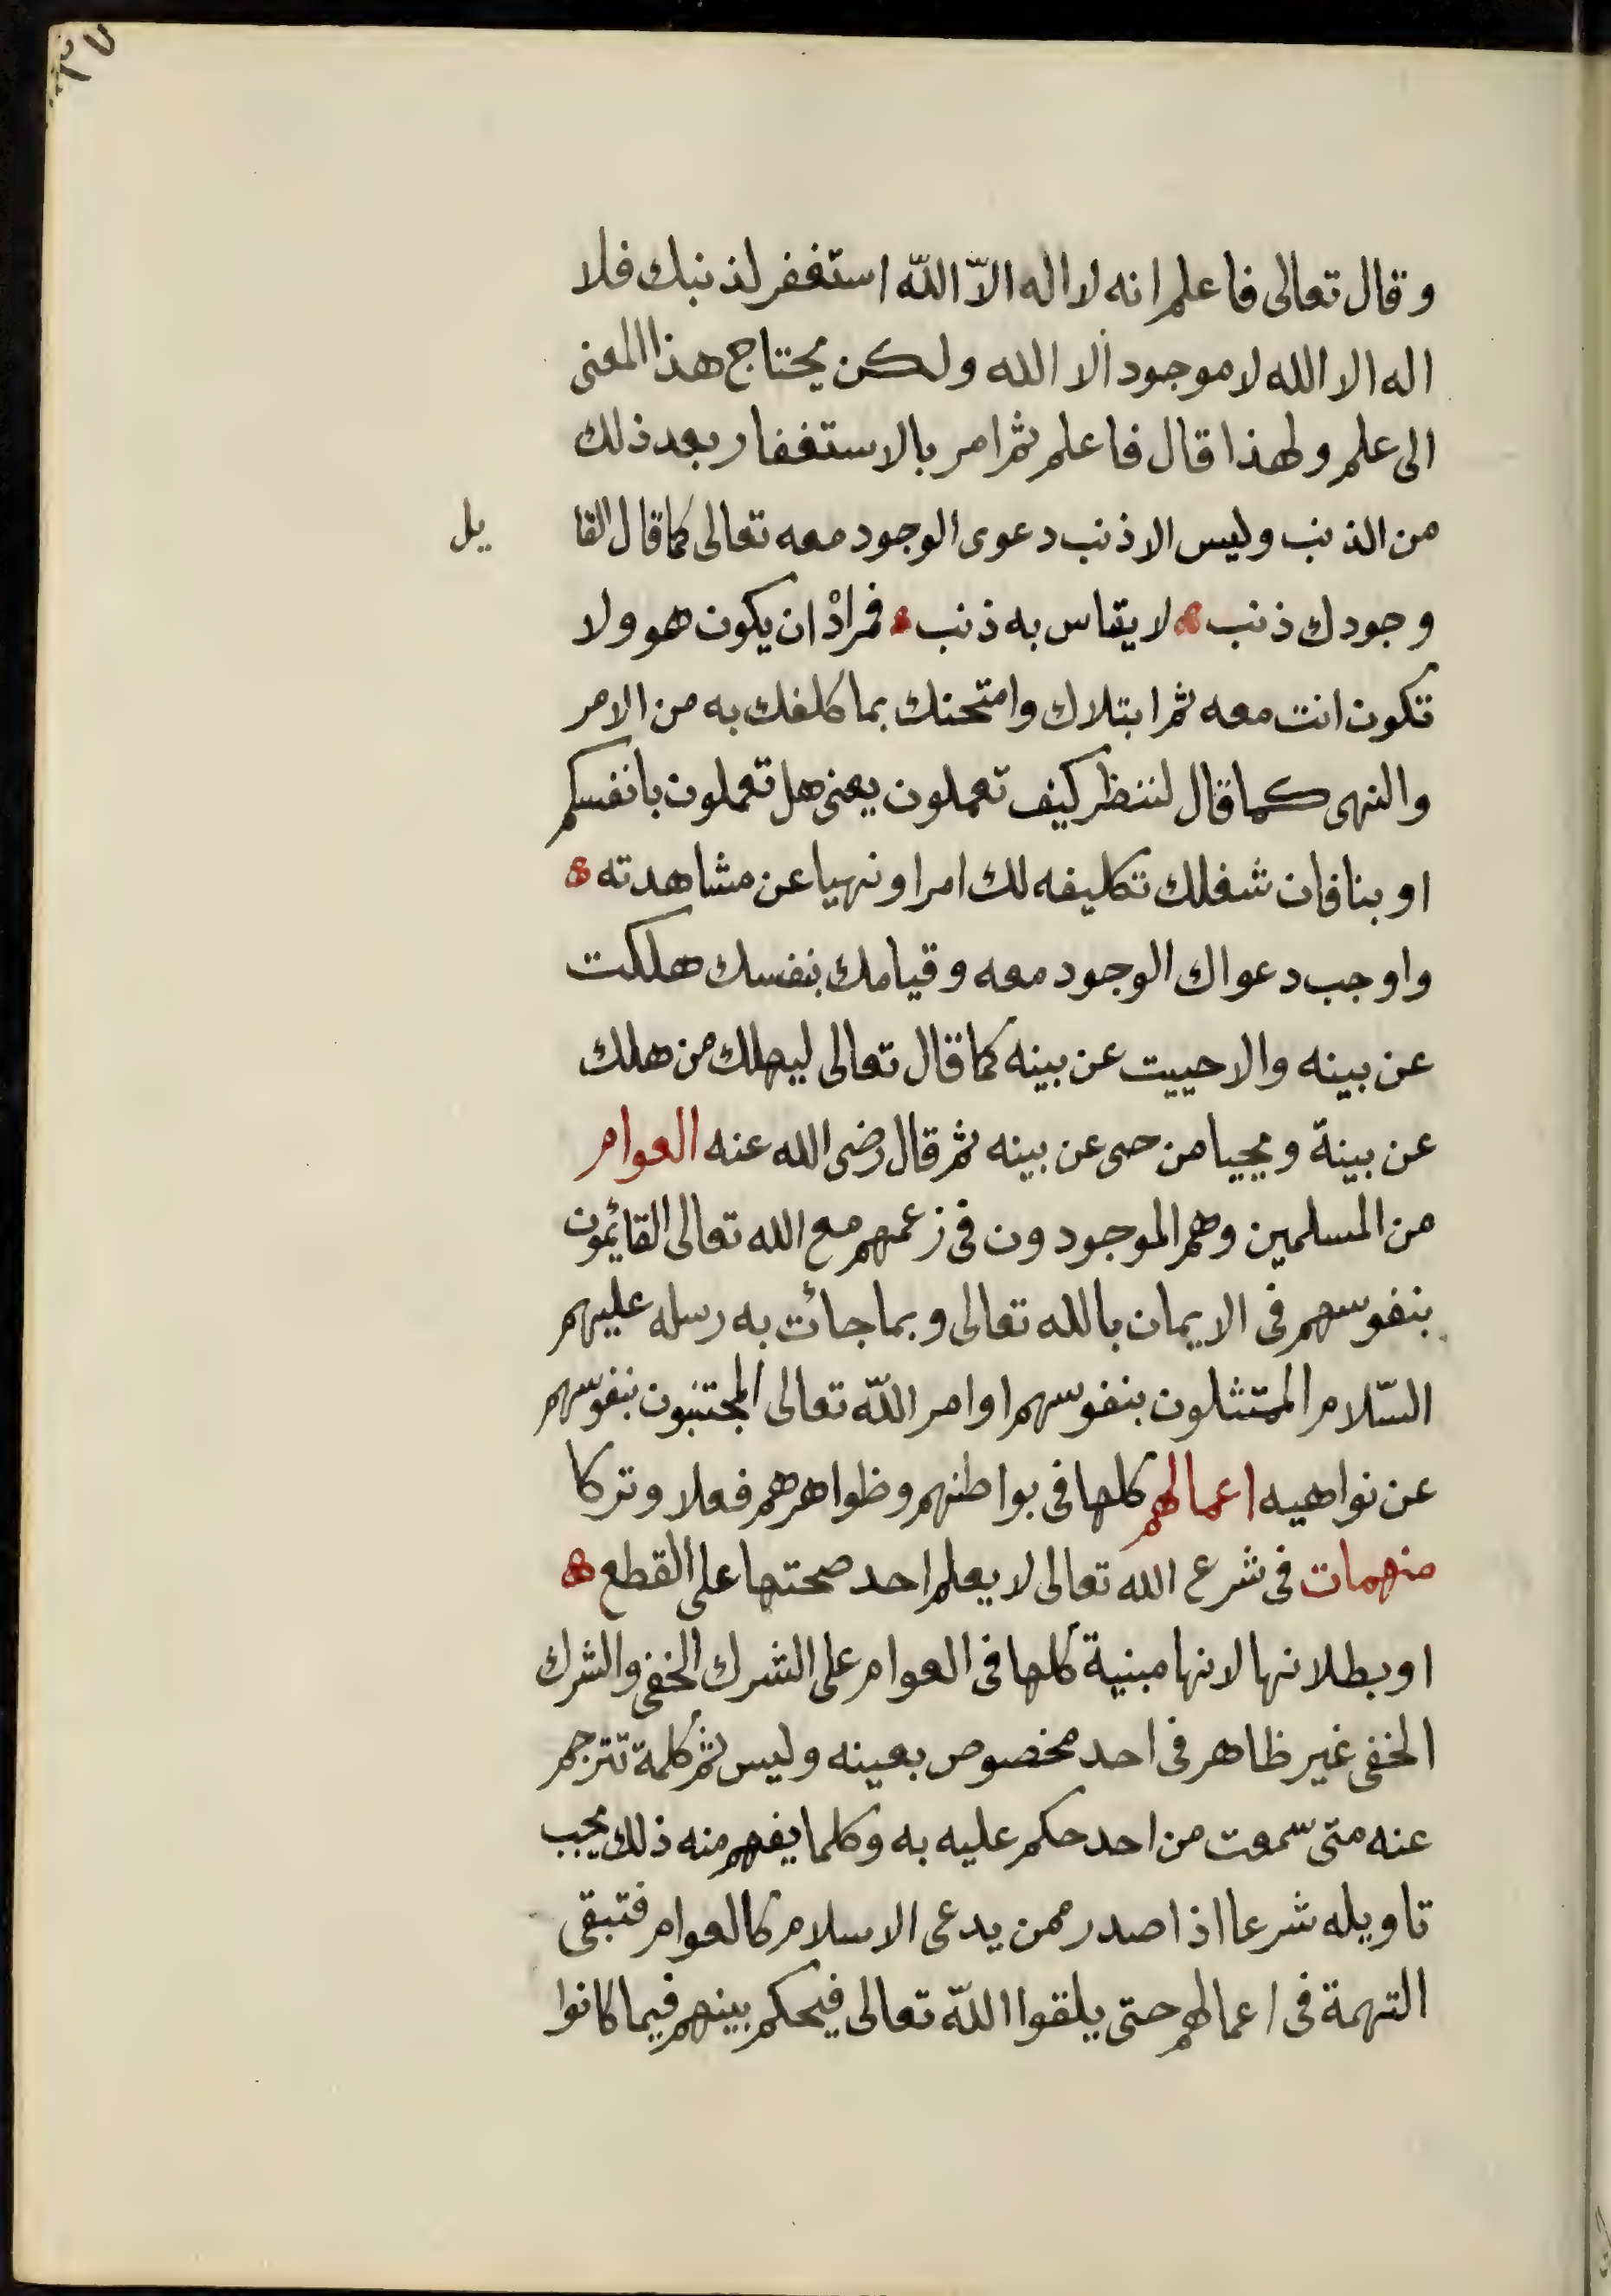 وقال تعالى فاعلم انه لا اله الاّ اللّه استغفر لذنبك فلا
اله الا الله لا موجود الا الله ولكن يحتاج هذا المعنى
الى علم ولهذا قال فاعلم ثم امر بالاستغفار بعد ذلك
من الذنب وليس الا ذنب دعوى الوجود معه تعالى كما قال القا يل
وجودك ذنب ه لا يقاس به ذنب ه فمرادْ ان يكون هو ولا
تكون انت معه ثم ابتلاك وامتحنك بما كلفك به من الامر
والنهى كما قال لننظر كيف تعملون يعنى هل تعملون بانفسكم
او بنا فان شغلك تكليفه لك امرا ونهيا عن مشاهدته ه
واوجب دعواك الوجود معه وقيامك بنفسك هلكت
عن بينه والا حييت عن بينه كما قال تعالى ليهلك من هلك
عن بينة ويحيا من حى عن بينه ثم قال رضى الله عنه العوام
من المسلمين وهم الموجودون فى زعمهم مع الله تعالى القائمون
بنفوسهم فى الايمان بالله تعالى وبما جائت به رسله عليهم
السّلام الممتثلون بنفوسهم اوامر اللّه تعالى المجتنبون بنفوسهم
عن نواهيه اعمالهم كلها فى بواطنهم وظواهرهم فعلا وتركا
منهمات فى شرع الله تعالى لا يعلم احد صحتها على القطع ه
او بطلانها لانها مبنية كلها فى العوام على الشرك الخفى والشرك
الخفى غير ظاهر فى احد مخصوص بعينه وليس ثم كلمة تترجم
عنه متى سمعت من احد حكم عليه به وكلما يفهم منه ذلك يجب
تاويله شرعا اذا صدر ممن يدعى الاسلام كالعوام فتبقى
التهمة فى اعمالهم حتى يلقوا اللّه تعالى فيحكم بينهم فيما كانوا